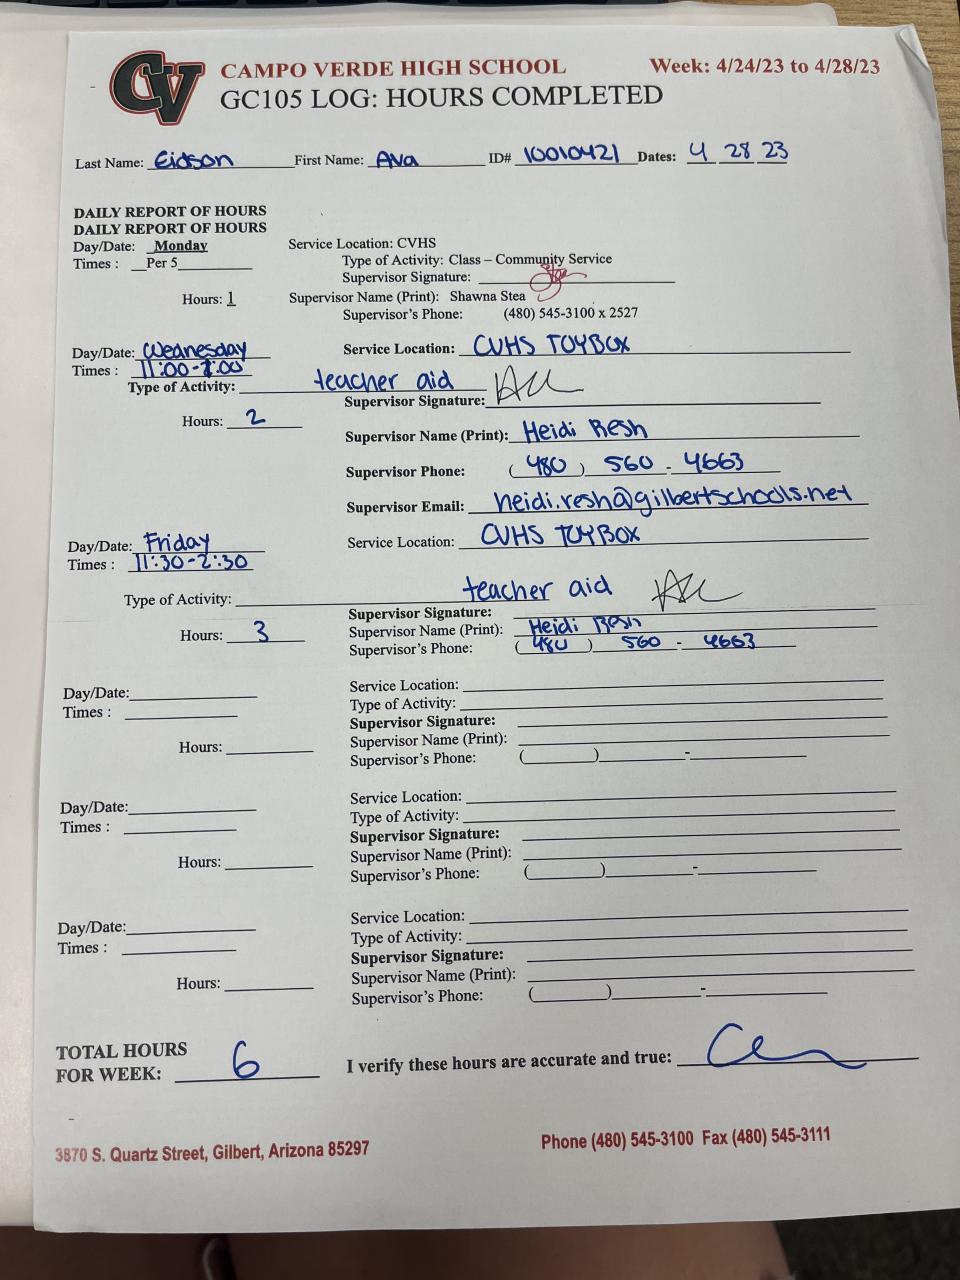 CV
CAMPO VERDE HIGH SCHOOL Week: 4/24/23 to 4/28/23
GC105 LOG: HOURS COMPLETED
Last Name: Eidson First Name: Ava ID# 10010421 Dates: 4 28 23
DAILY REPORT OF HOURS
DAILY REPORT OF HOURS
Day/Date: Monday Service Location: CVHS
Times : Per 5 Type of Activity: Class – Community Service
Supervisor Signature:
Hours: 1 Supervisor Name (Print): Shawna Stea
Supervisor's Phone: (480) 545-3100 x 2527
Day/Date: Wednesday Service Location: CVHS TOYBOX
Times : 11:00-1:00
Type of Activity: teacher aid
Supervisor Signature:
Hours: 2
Supervisor Name (Print): Heidi Resh
Supervisor Phone: (480) 560-4663
Supervisor Email: heidi.resh@gilbertschools.net
Day/Date: Friday Service Location: CVHS TOYBOX
Times : 11:30-2:30
Type of Activity: teacher aid
Supervisor Signature:
Hours: 3 Supervisor Name (Print): Heidi Resh
Supervisor's Phone: (480) 560-4663
Day/Date: Service Location:
Times : Type of Activity:
Supervisor Signature:
Hours: Supervisor Name (Print):
Supervisor's Phone: ( ) -
Day/Date: Service Location:
Times : Type of Activity:
Supervisor Signature:
Hours: Supervisor Name (Print):
Supervisor's Phone: ( ) -
Day/Date: Service Location:
Times : Type of Activity:
Supervisor Signature:
Hours: Supervisor Name (Print):
Supervisor's Phone: ( ) -
TOTAL HOURS
FOR WEEK: 6 I verify these hours are accurate and true:
3870 S. Quartz Street, Gilbert, Arizona 85297 Phone (480) 545-3100 Fax (480) 545-3111